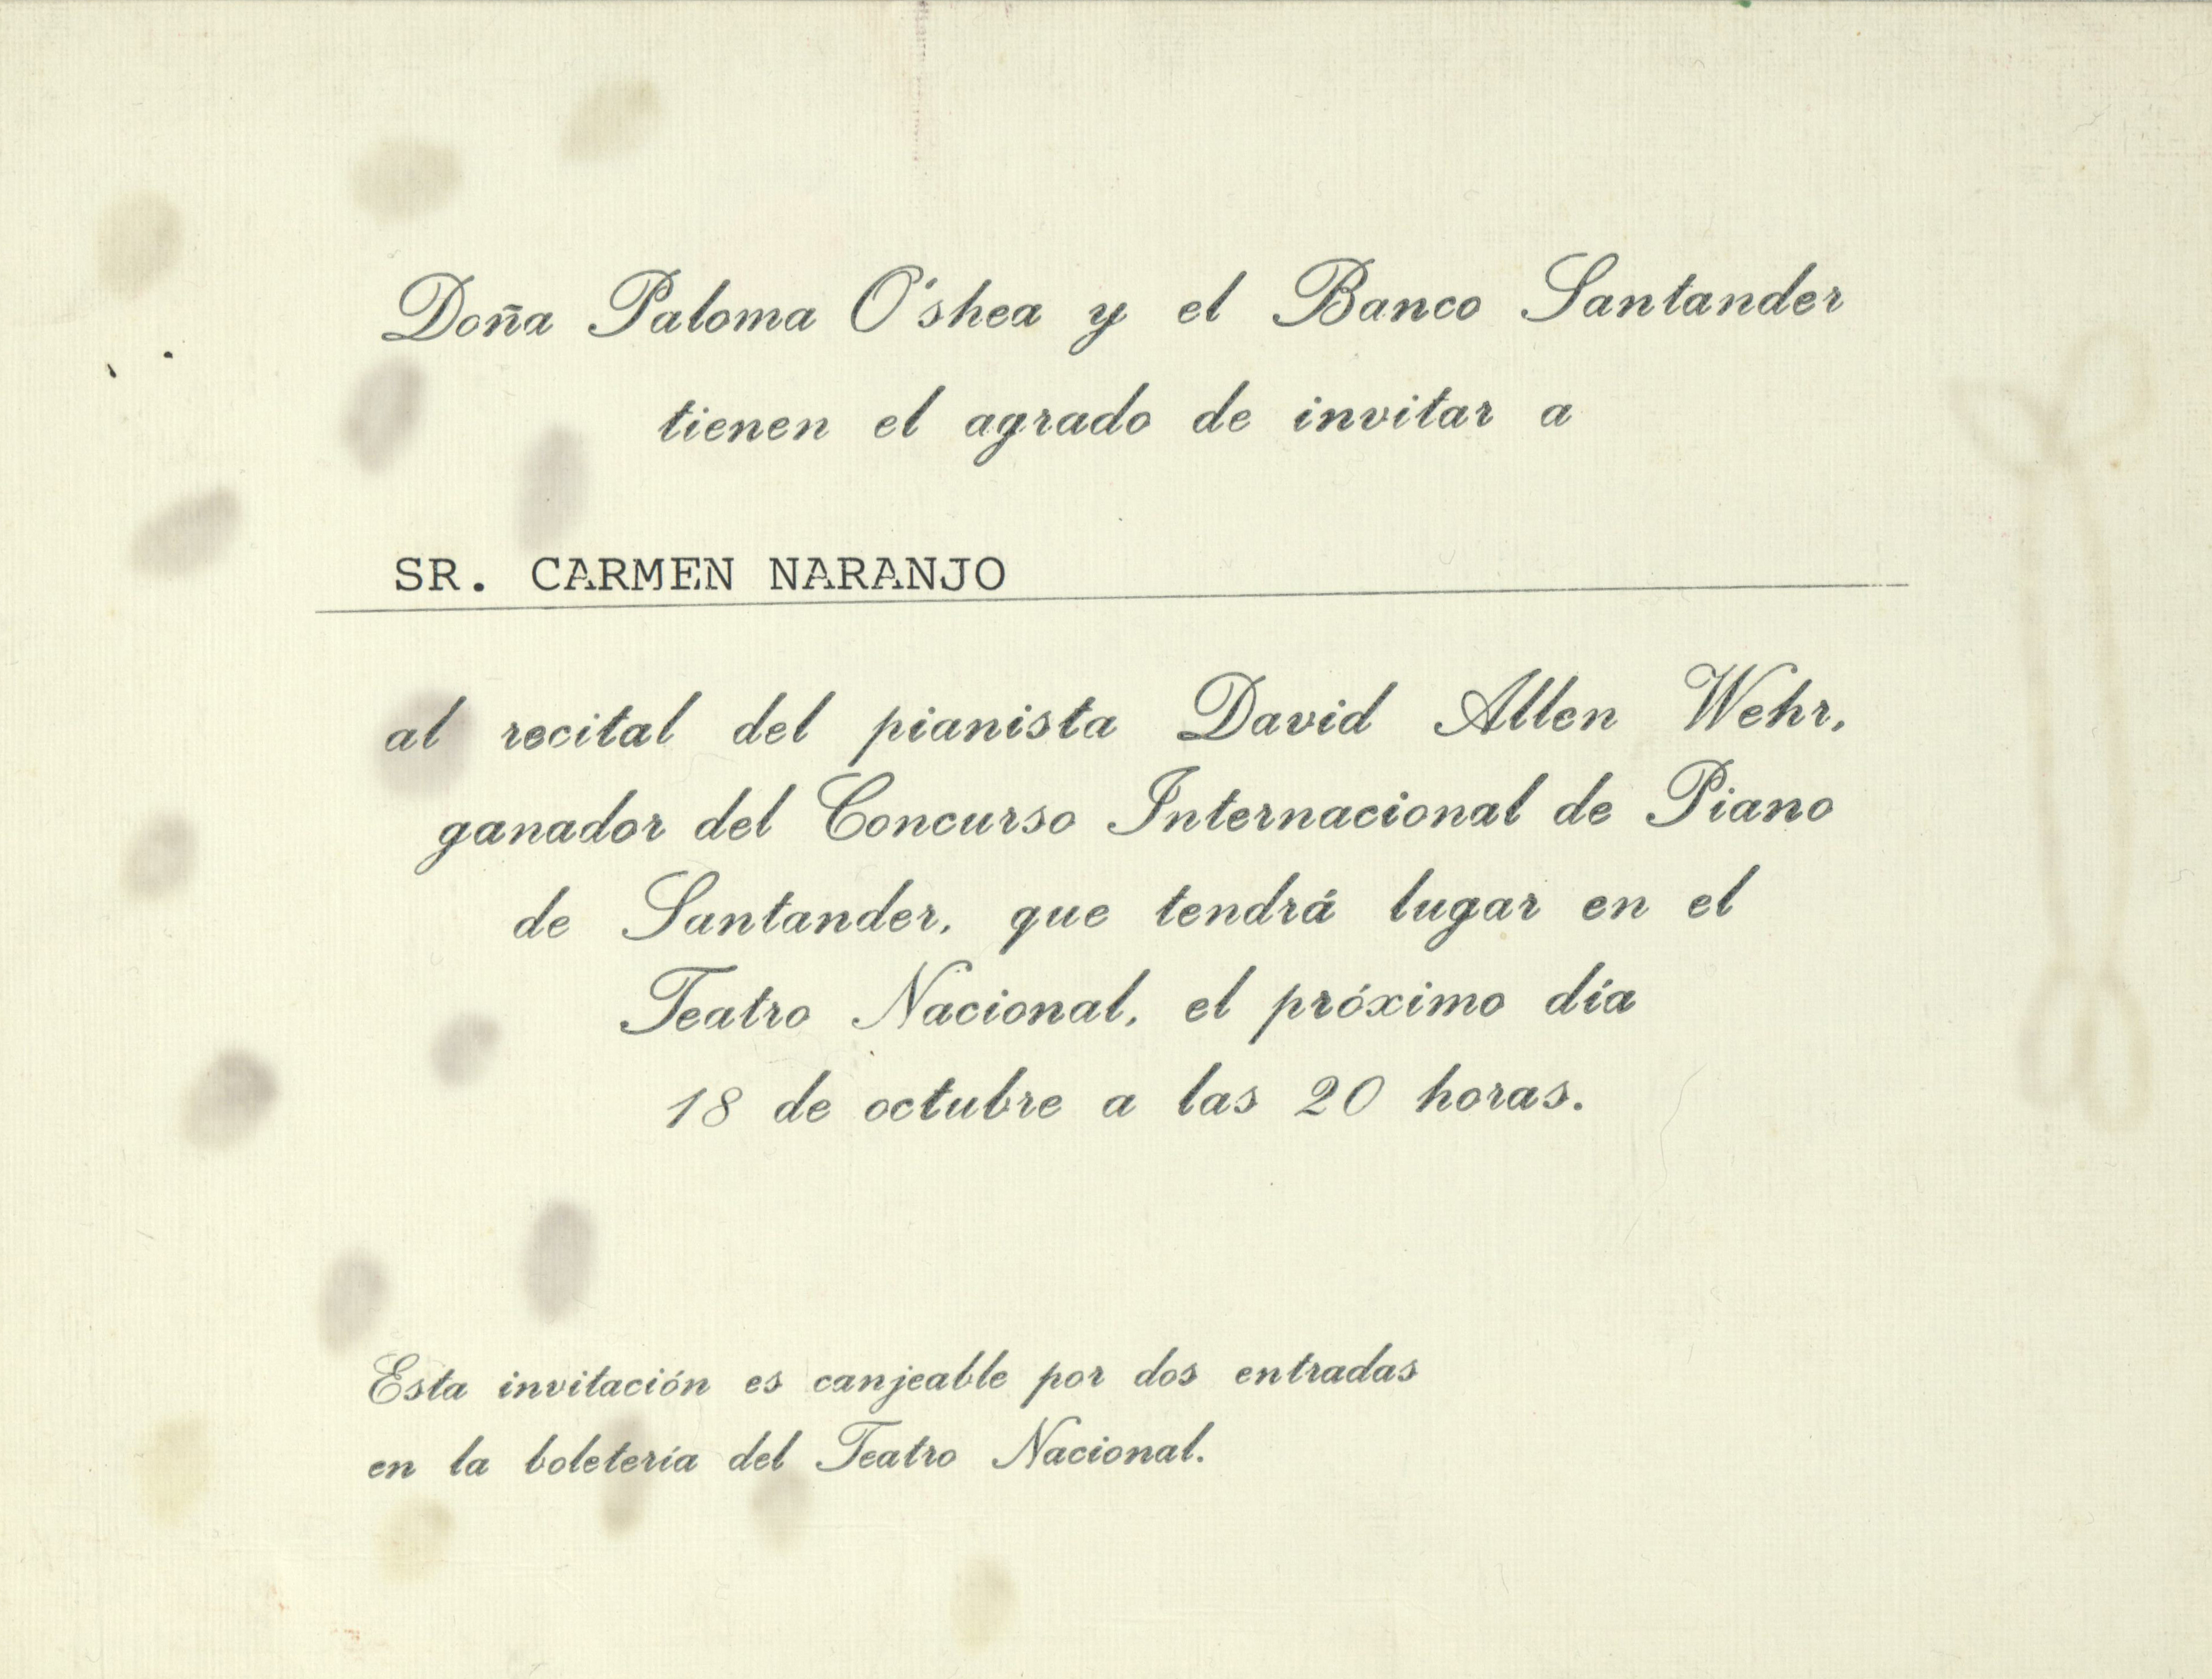 Doña Paloma O'shea y el Banco Santander
tienen el agrado de invitar a
SR. CARMEN NARANJO
al recital del pianista David Allen Wehr,
ganador del Concurso Internacional de Piano
de Santander, que tendrá lugar en el
Teatro Nacional, el próximo día
18 de octubre a las 20 horas.
Esta invitación es canjeable por dos entradas
en la boletería del Teatro Nacional.